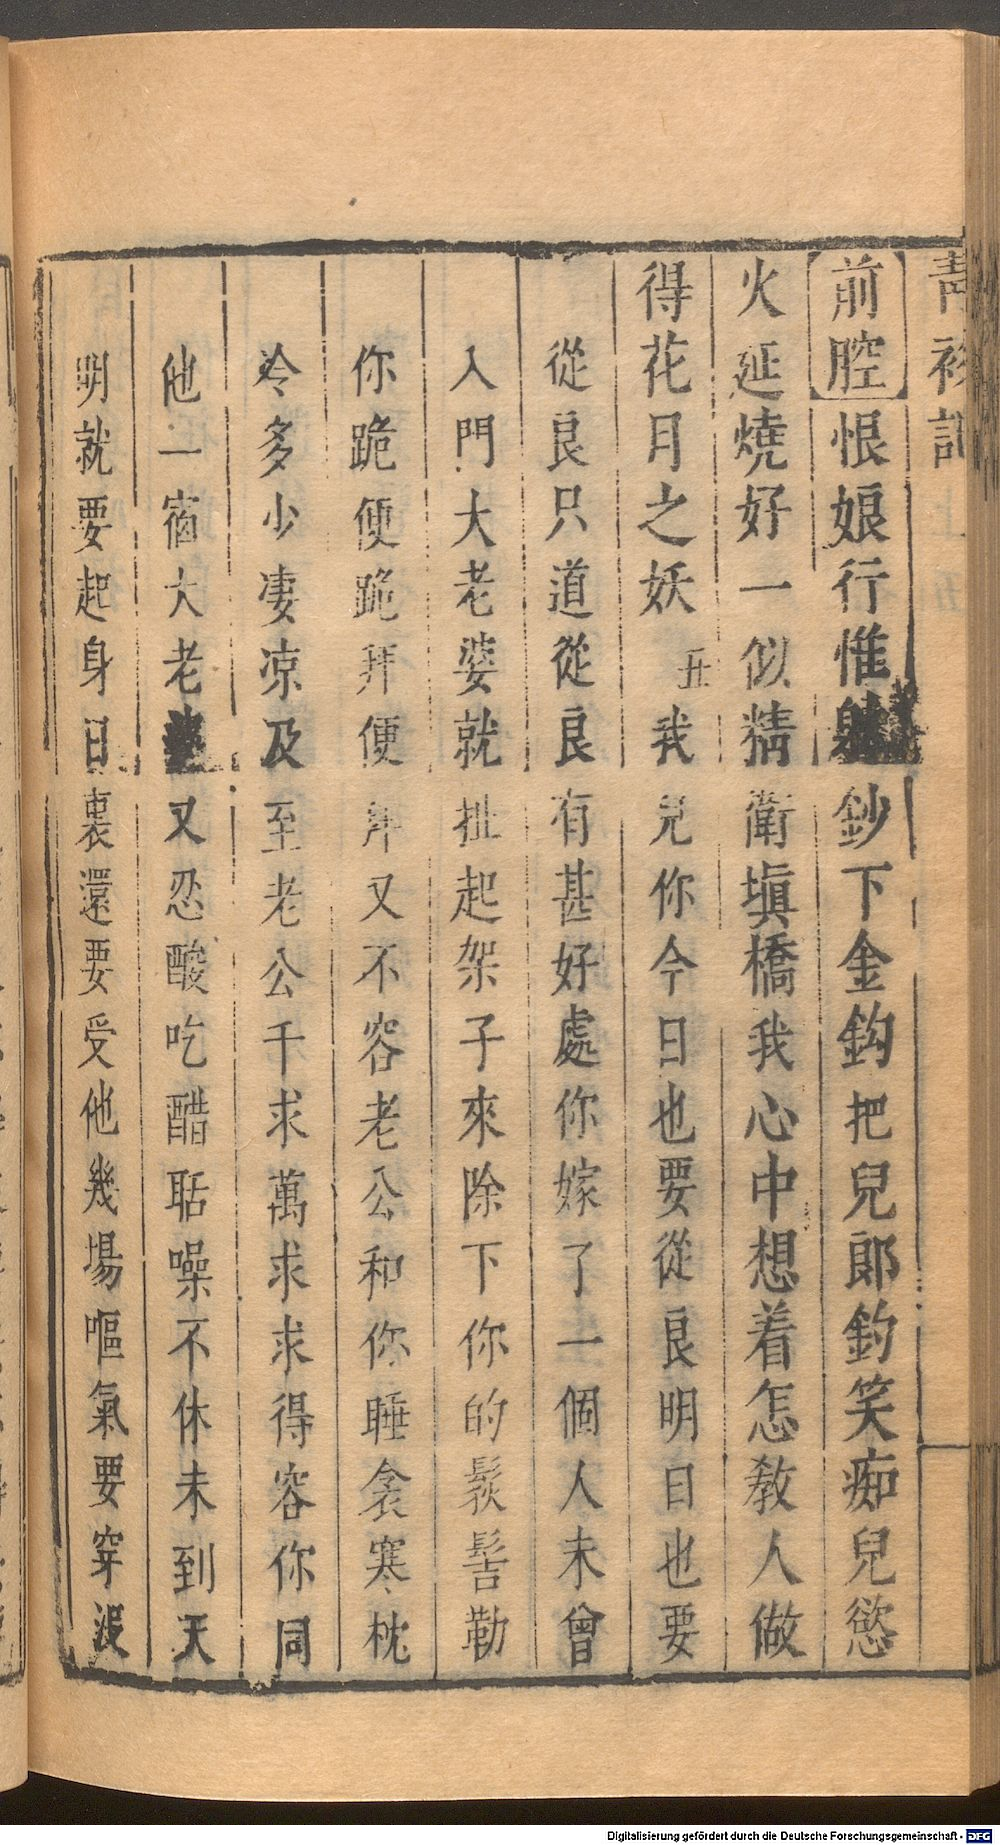 青衫記
前腔恨娘行惟鈔下金鈎把兒郎釣笑痴兒慾
火延燒好一似精衛塡橋我心中想着怎敎人做
得花月之妖丑我兒你今日也要從良明日也要
從良只道從良有甚好處你嫁了一個人未曾
入門大老婆就扯起架子來除下你的䯼髻勒
你跪便跪拜便拜又不容老公和你睡衾寒枕
冷多少凄凉及至老公千求萬求求得容你同
他一宿大老又忍酸吃醋聒噪不休未到天
明就要起身日裏還要受他幾場嘔氣要穿沒
Digitalisierung gefördert durch die Deutsche Forschungsgemeinschaft - DFG